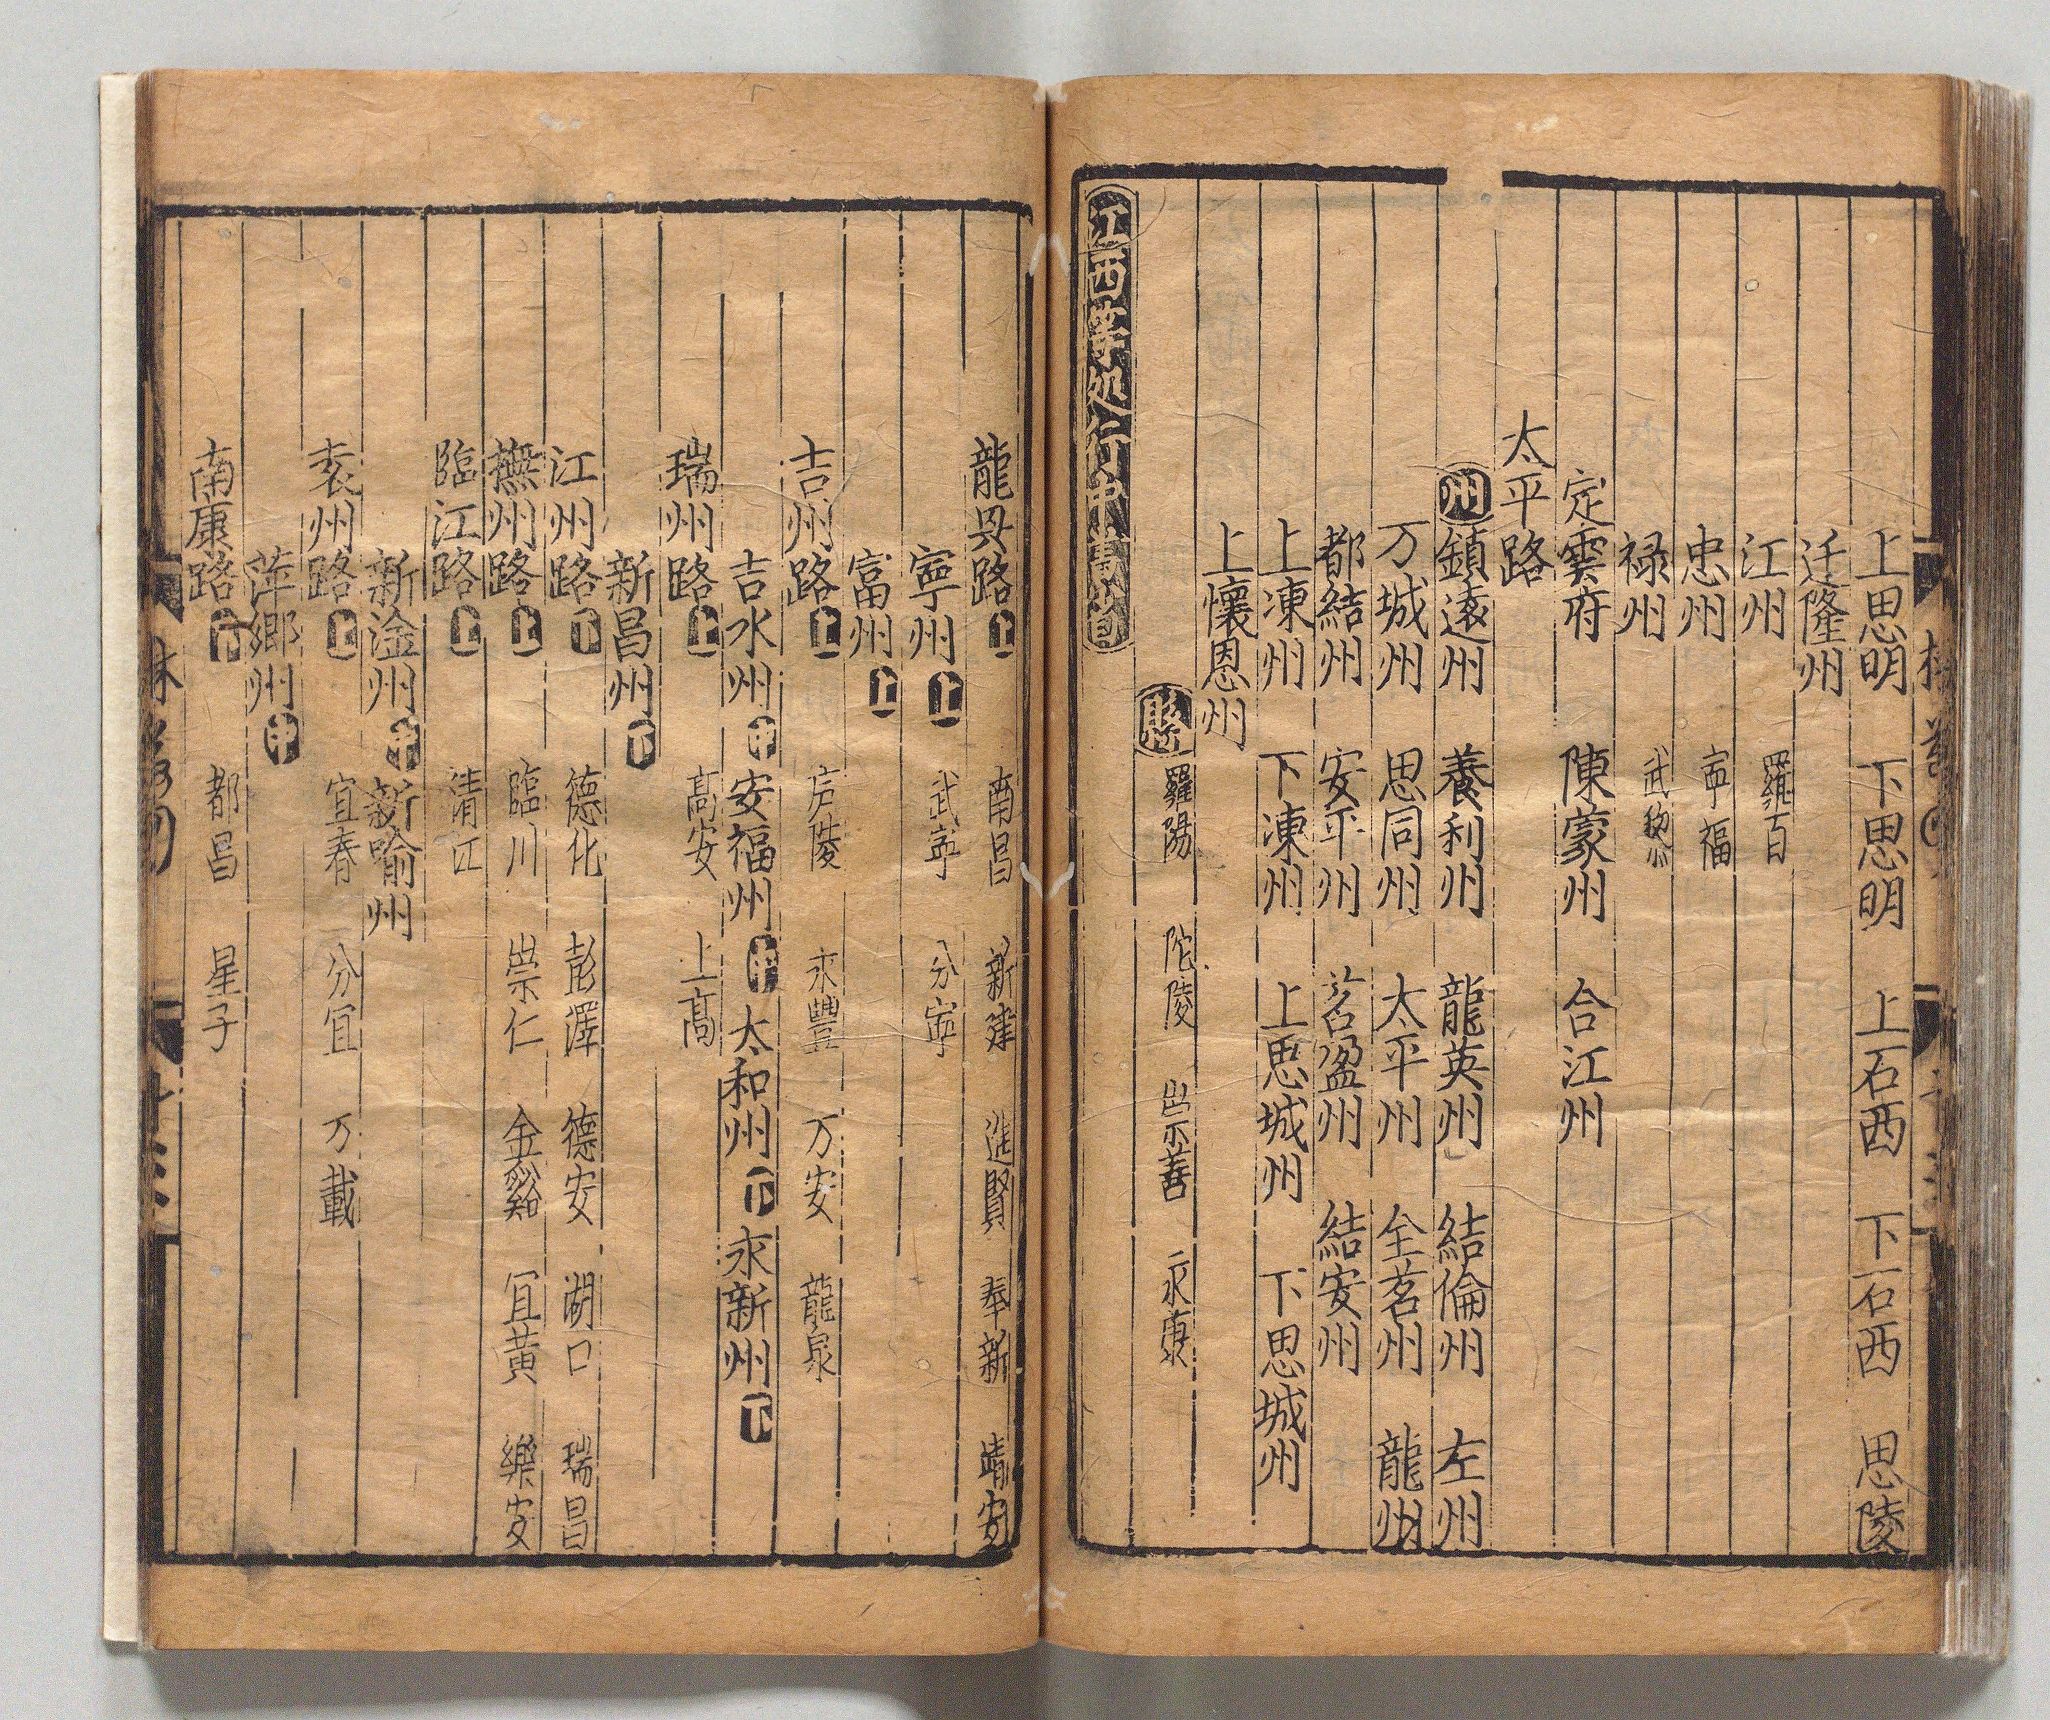 上思明 下思明 上石西 下石西 思陵
迁隆州
江州 羅百
忠州 寕福
禄州 武黎
定雲府 陳蒙州 合江州
太平路
州 鎮遠州 養利州 龍英州 結倫州 左州
万城州 思同州 太平州 全茗州 龍州
都結州 安平州 茗盈州 結安州
上凍州 下凍州 上思城州 下思城州
上懷恩州
縣 羅陽 陀陵 崇善 永康
江西等処行中書省
龍興路 上 南昌 新建 進賢 奉新 靖安
寧州 上 武寕 分寕
富州 上
吉州路 上 庐陵 永豐 万安 龍泉
吉水州 中 安福州 中 太和州 下 永新州 下
瑞州路 上 高安 上高
新昌州 下
江州路 下 德化 彭澤 德安 湖口 瑞昌
撫州路 上 臨川 崇仁 金谿 宜黄 樂安
臨江路 上 清江
新淦州 中 新喻州
袁州路 上 宜春 分宜 万載
萍鄉州 中
南康路 下 都昌 星子